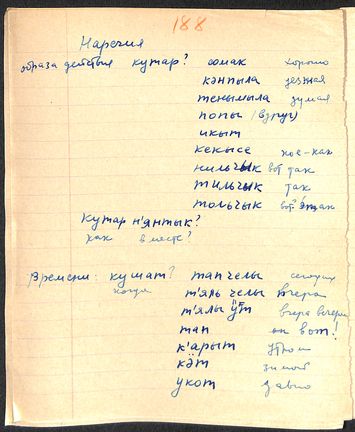 188
Наречия
образа действия кутар? сомак хорошо
кэнпыла
тенымыла думая
попы (вдруг)
икыт
кекысе кое-как
нильчык вот так
тильчык так
тольчык вот этак
кутар н'янтык?
как вместе?
Времени: кушат? тап челы сегодня
когда т'яль челы вчера
т'ялы ӱт вчера вечером
тап он вот!
к'арыт утром
кэт зимой
укот давно